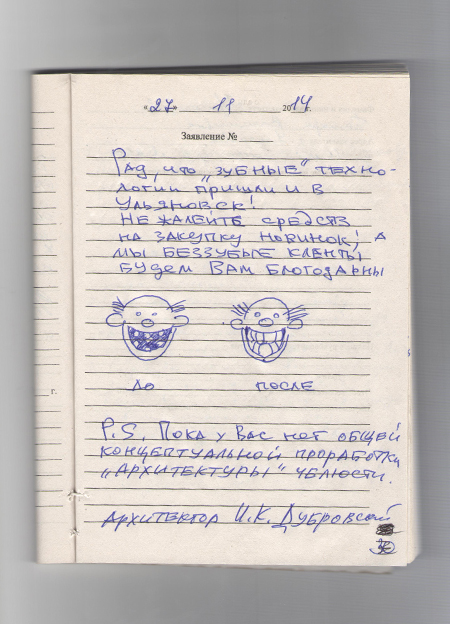 «27» 11 2014 г.
Заявление №
Рад, что „зубные" техно-
логии пришли и в
Ульяновск!
Не жалейте средств
на закупку новинок, а
мы беззубые кленты,
будем Вам благодарны
до после
г.
P.S. Пока у Вас нет общей
концептуальной проработки
„архитектуры" челюсти.
Архитектор И.К. Дубровской